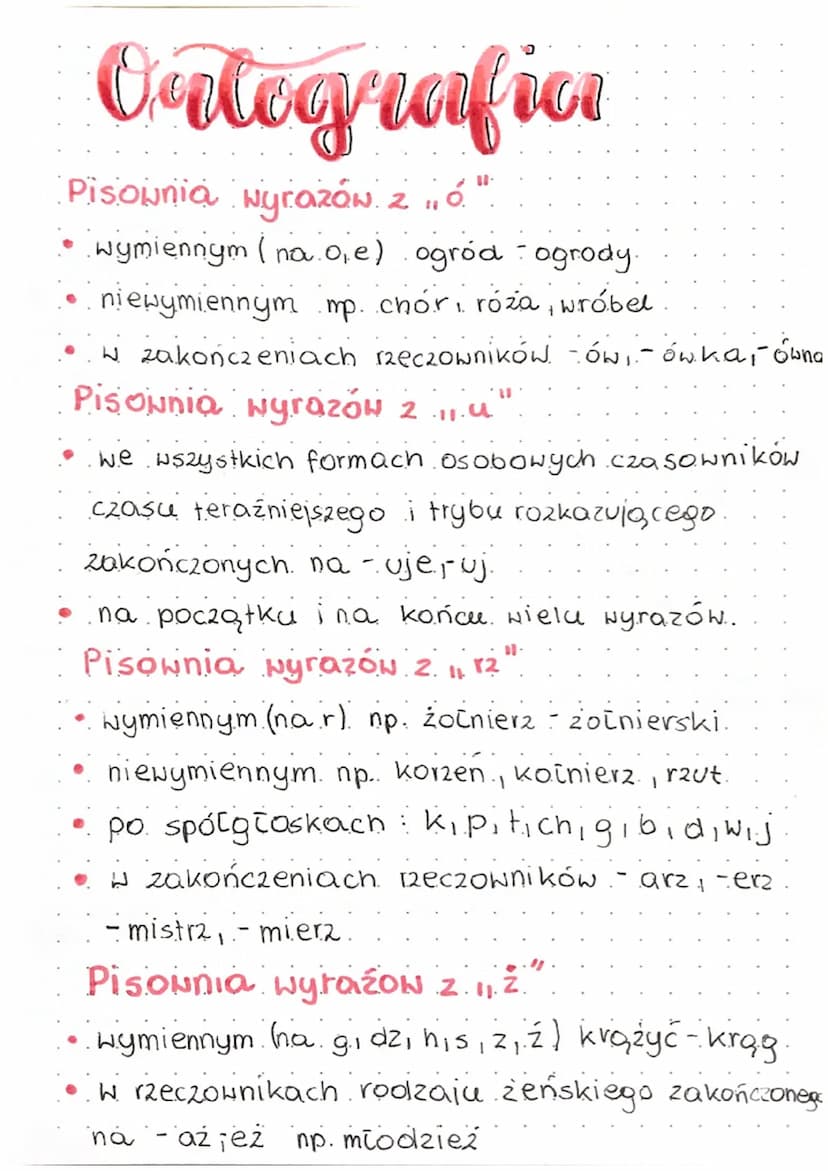 Ortografia
Pisownia wyrazów z „ó"
• wymiennym (na o,e) ogród - ogrody
• niewymiennym np. chór, róża, wróbel
• w zakończeniach rzeczowników -ów, -ówka, -ówna
Pisownia wyrazów z „u"
• we wszystkich formach osobowych czasowników
czasu teraźniejszego i trybu rozkazującego
zakończonych na -uje, -uj.
• na początku i na końcu wielu wyrazów.
Pisownia wyrazów z „rz"
• wymiennym (na r) np. żołnierz - żołnierski
• niewymiennym np. korzeń, kołnierz, rzut
• po spółgłoskach : k, p, t, ch, g, b, d, w, j
• w zakończeniach rzeczowników - arz, -erz
-mistrz, - mierz
Pisownia wyrazów z „ż"
• wymiennym (na g, dz, h, s, z, ź) krążyć - krąg
• w rzeczownikach rodzaju żeńskiego zakończonego
na - aż, eż np. młodzież